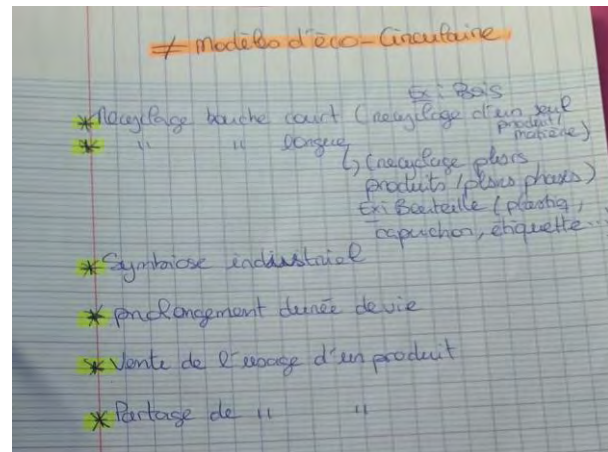 ≠ Modèles d'éco-Circulaire
Ex: Bois
* Recyclage bouche court (recyclage d'un seul
produit/
matière)
* " " longue
↳ (recyclage plsrs
produits / plsrs phases)
Ex: Bouteille (plastiq,
capuchon, étiquette...
* Symbiose industriel
* prolongement durée de vie
* Vente de l'usage d'un produit
* Partage de " "